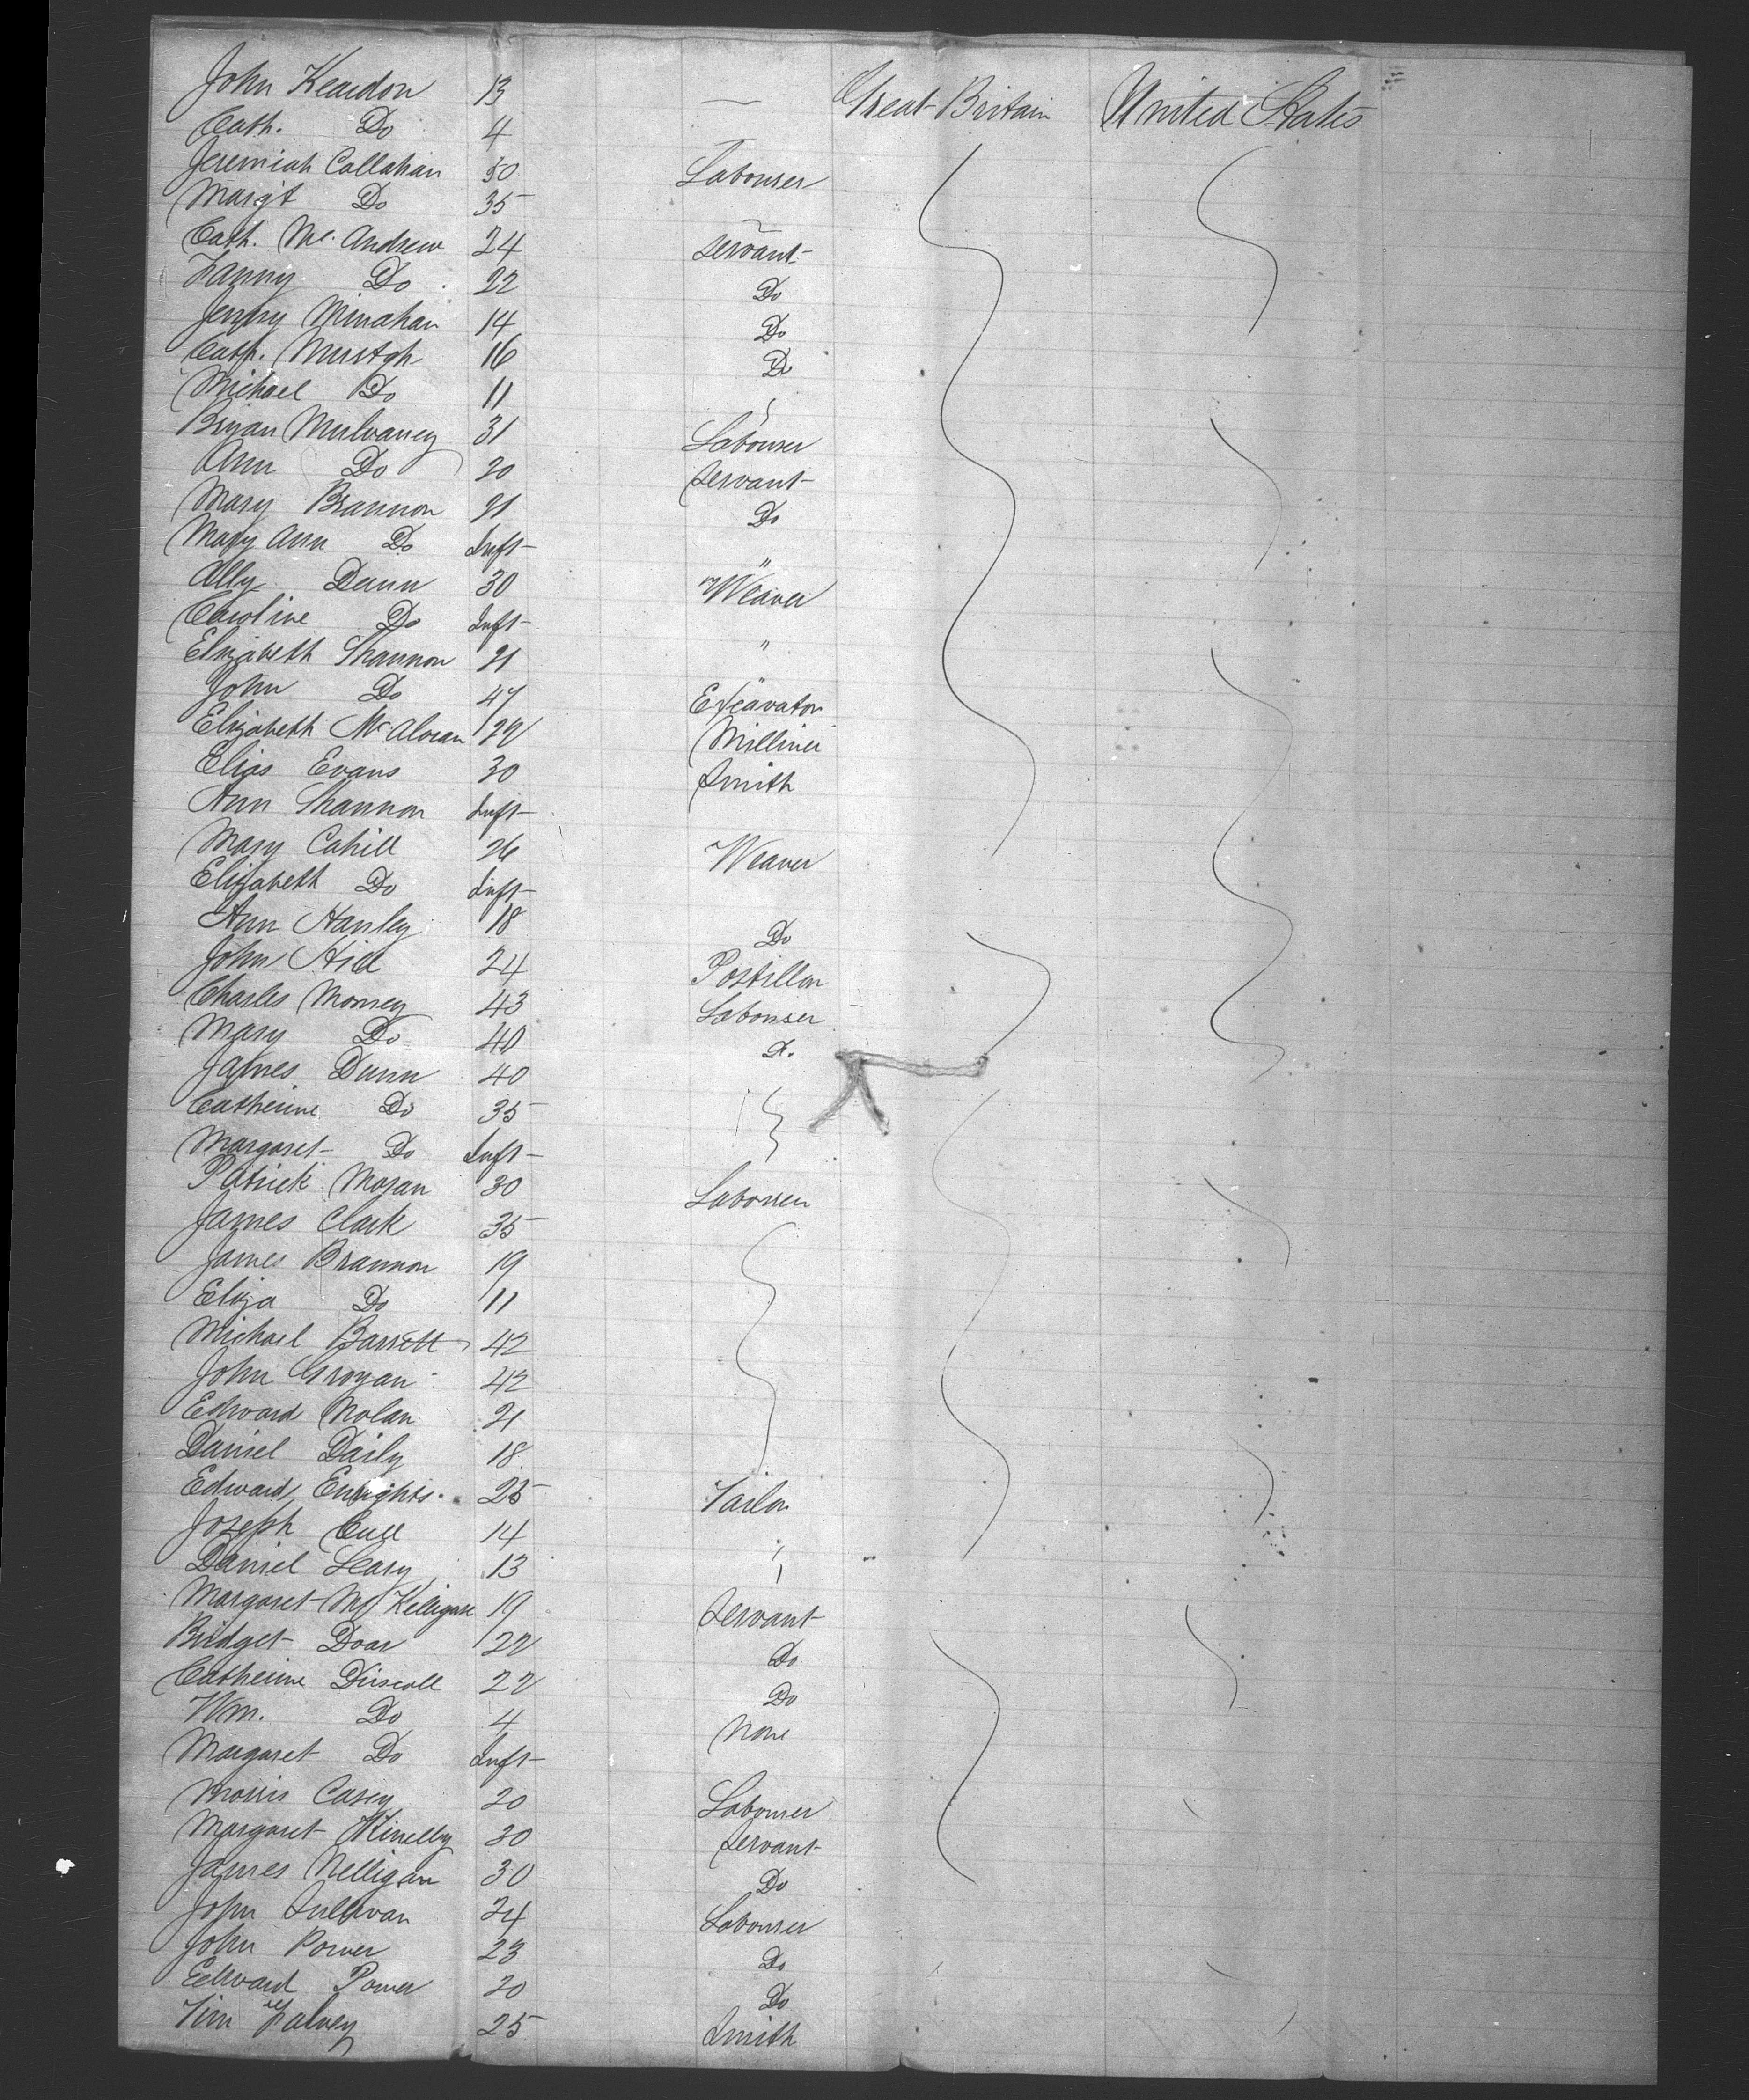 John Reardon 13 — Great Britain United States
Cath. Do 4 —
Jeremiah Callahan 50 Labourer
Margt Do 35
Cath. Mc. Andrew 24 servant
Fanny Do 22 Do
Jenny Minahan 14 Do
Cath. 16 Do
Michael Do 11
Bryan Mulvaney 31 Labourer
Ann Do 20 servant
Mary Brannon 21 Do
Mary Ann Do Inft
Ally Dunn 30 " Weaver
Caroline Do Inft
Elizabeth Shannon 21 "
John Do 47 Excavator
Elizabeth 22 Milliner
Elias Evans 30 Smith
Ann Shannon Inft
Mary Cahill 26 Weaver
Elizabeth Do Inft
Ann Hanley 18 Do
John 24 Postillon
Charles 43 Labourer
Mary Do 40
James Dunn 40
Catherine Do 35
Margaret Do Inft
Patrick Moran 30 Labourer
James Clark 35
James Brannon 19
Eliza Do 11
Michael Barrett 42
John Grogan 42
Edward Nolan 21
Daniel Daily 18
Edward Enrights 25 Tailor
Joseph 14
Daniel Leary 13
Margaret 19 Servant
Bridget Doar 22 Do
Catherine Driscoll 22 Do
Wm. Do 4 None
Margaret Do Inft
Morris Casey 20 Labourer
Margaret 30 servant
James Nelligan 30 Do
John Sullivan 24 Labourer
John Power 23 Do
Edward Power 20 Do
Tim Falvey 25 Smith